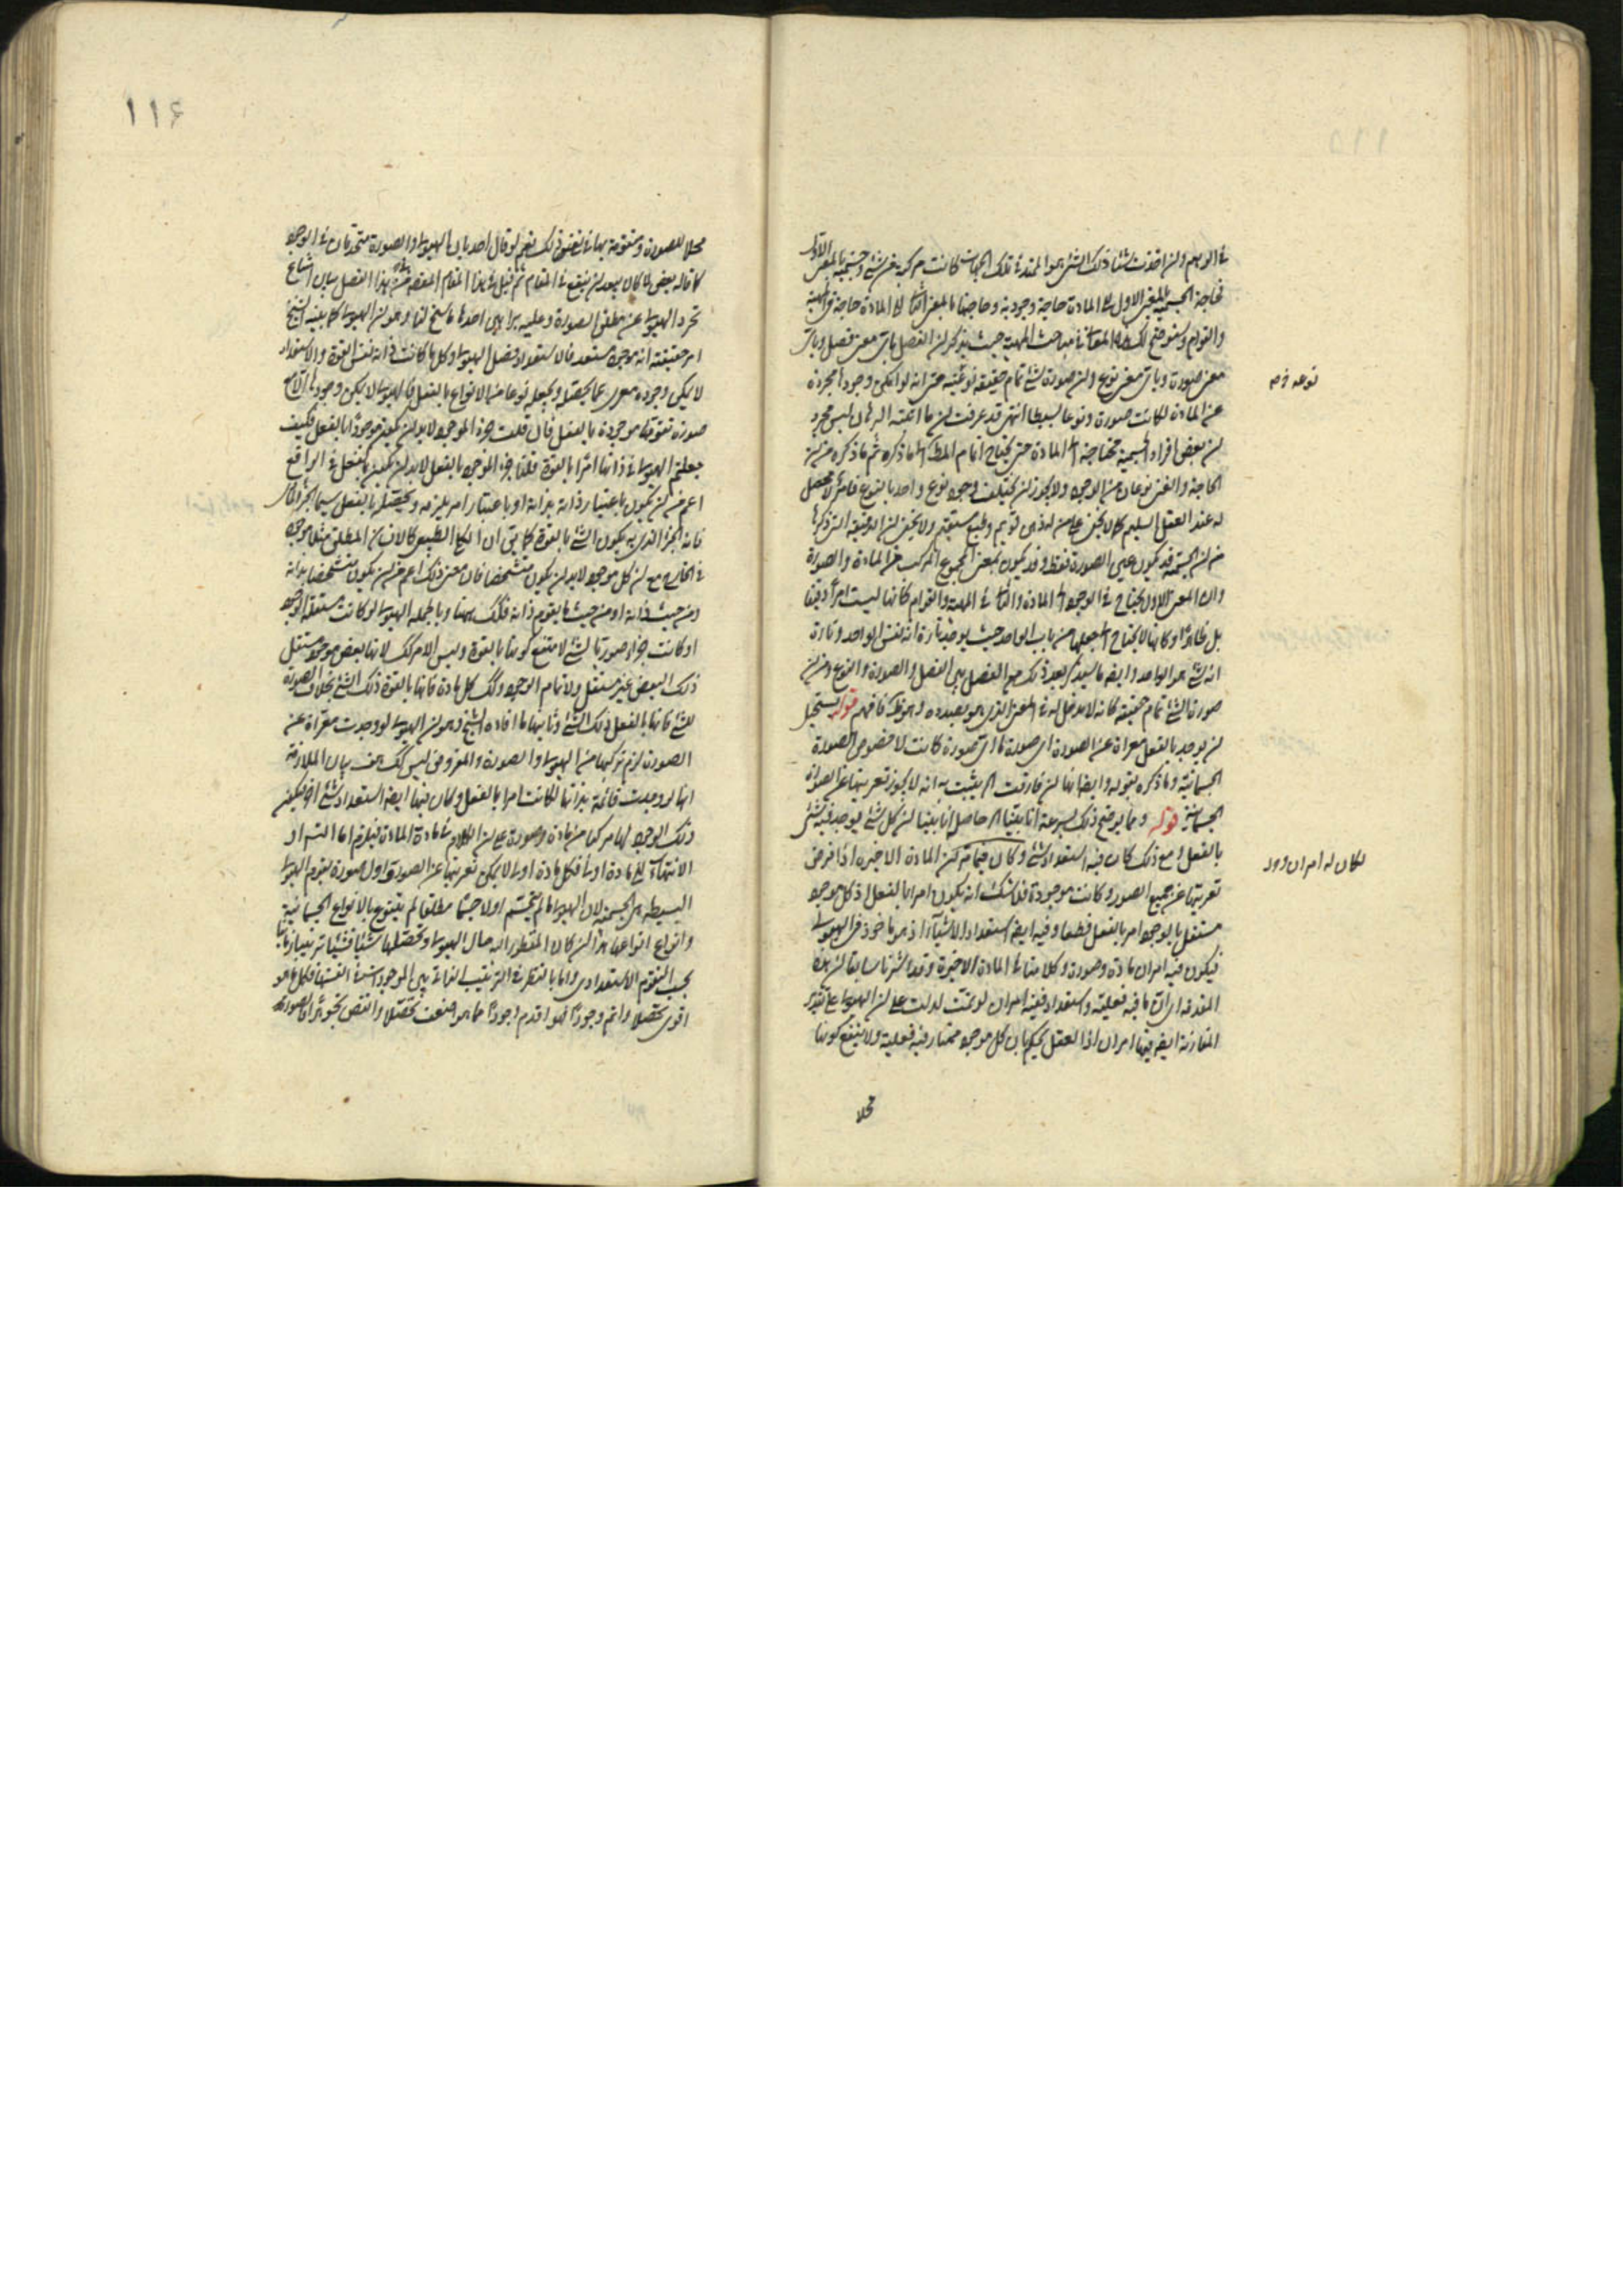 في الوهم وان اخذت شيئا ذلك الشيء هو الممتد في تلك الجهات كانت مركبة من شيء وجسمية بالمعنى الاول
فحاجة الجسمية بالمعنى الاول الى المادة حاجة وجودية وحاجتها بالمعنى الثاني الى المادة حاجة في المهية
والقوام وسنوضح لك هذا المعنى في مباحث المهية حيث يذكر ان الفصل باي معنى فصل وباي
معنى صورة وباي معنى نوع وان صورة الشيء تمام حقيقته نوعيته حتى انه لو امكن وجودها مجردة
عن المادة لكانت صورة ونوعا بسيطا انتهى قد عرفت ان ما اثبته البرهان ليس مجرد
ان بعض افراد الجسمية محتاجة الى المادة حتى يحتاج اتمام المطلب الى ما ذكره ثم ما ذكره من ان
الحاجة والغنى نوعان من الوجود ولا يجوز ان يختلف وجود نوع واحد بالنوع فامر لا محصل
له عند العقل السليم كما لا يخفى على من له ذهن قويم وطبع مستقيم ولا يخفى ان الدقيقة التي ذكرها
من ان الجسمية قد يكون هي الصورة فقط وقد يكون بمعنى المجموع المركب من المادة والصورة
وان المعنى الاول يحتاج في الوجود الى المادة والثاني في المهية والقوام كانها ليست امرا دقيقا
بل ظاهرا وكانها لا يحتاج الى جعلها من باب الواحد حيث يوخذ تارة انه نفس الواحد وتارة
انه شيء هو الواحد وايضا ما سيذكر بعد ذلك من الفصل بين الفصل والصورة والنوع من ان
صورة الشيء تمام حقيقته كانه لا مدخل له في المعنى الذي هو بصدده وهو ظ فافهم قوله يستحيل
ان يوجد بالفعل معراة عن الصورة اي صورة ما اي صورة كانت لا خصوص الصورة
الجسمانية وما ذكره بقوله وايضا انها ان فارقت الخ يثبت به انه لا يجوز تعريتها عن الصورة
الجسمانية قوله ومما يوضح ذلك بسرعة انا بينا الخ حاصله انا بينا ان كل شيء يوجد فيه شيء
بالفعل ومع ذلك كان فيه استعداد شيء وكان فيما مر ان المادة الاخيرة اذا فرض
تعريتها عن جميع الصور وكانت موجودة فلا شك انه يكون امرا بالفعل اذ كل موجود
مستقل بالوجود امر بالفعل قطعا وفيه ايضا استعداد الاشياء اذ هو ماخوذ في الهيولى
فيكون فيه امران مادة وصورة وكلامنا في المادة الاخيرة وقد اشرنا سابقا ان هذه
المقدمة اي ان ما فيه فعلية واستعداد ففيه امران لو تمت لدلت على ان الهيولى على تقدير
المقارنة ايضا فيها امران اذ العقل يحكم بان كل موجود ممتاز فيه فعلية ولا ينفع كونها
محلا
نوعه فرم
لكان له امران ورد
١١٦
محلا للصورة ومتقومة بها في نفي ذلك نعم لو قال احد بان الهيولى والصورة متحدتان في الوجود
كما قاله بعض لما كان يبعد ان ينفع في المقام ثم قيل في هذا المقام المقصود من هذا الفصل بيان امتناع
تجرد الهيولى عن مطلق الصورة وعليه براهين احدها ما سنح لنا وهو ان الهيولى كما بينه الشيخ
امر حقيقته انه موجود مستعد فالاستعداد فصل الهيولى وكل ما كانت ذاته نفس القوة والاستعداد
لا يمكن وجوده معرى عما يحصله ويجعله نوعا من الانواع بالفعل فالهيولى لا يمكن وجودها الا مع
صورة تقومها موجودة بالفعل فان قلت جزء الموجود لا بد ان يكون موجودا بالفعل فكيف
جعلتم الهيولى في ذاتها امرا بالقوة قلنا جزء الموجود بالفعل لا بد ان يكون بالفعل في الواقع
اعم من ان يكون باعتبار ذاته بذاته او باعتبار امر يلزمه ويحصله بالفعل سيما الجزء المادي
فانه الجزء الذي به يكون الشيء بالقوة كما يق ان الكلي الطبيعي كالانسان المطلق مثلا موجود
في الخارج مع ان كل موجود لا بد ان يكون متشخصا فان معنى ذلك اعم من ان يكون متشخصا بذاته
ومن حيث ذاته او من حيث ما يقوم ذاته فكذلك ههنا وبالجملة الهيولى لو كانت مستقلة الوجود
او كانت جزءا صوريا لشيء لامتنع كونها بالقوة وليس الامر كذلك لانها بعض موجود مستقل
ذلك البعض غير مستقل ولا تمام الوجود وكذلك كل مادة فانها بالقوة ذلك الشيء بخلاف الصورة
للشيء فانها بالفعل ذلك الشيء وثانيها ما افاده الشيخ وهو ان الهيولى لو وجدت معراة عن
الصورة لزم تركبها من الهيولى والصورة والمفروض ليس كذلك هف بيان الملازمة
انها لو وجدت قائمة بذاتها لكانت امرا بالفعل ولكان فيها ايضا استعداد شيء اخر فيكون
ذلك الوجود لها مركبا من مادة وصورة على ان الكلام في مادة المادة فيلزم اما التسلسل او
الانتهاء الى مادة اولى فكل مادة اولى لا يمكن تعريتها عن الصورة واول صورة يقوم الهيولى
البسيطة هي الجسمية لان الهيولى ما لم يتجسم اولا جسما مطلقا لم يتنوع بالانواع الجسمانية
وانواع انواعها هذا ان كان المنظور اليه حال الهيولى وتحصلها شيئا فشيئا
بحسب التقوم الاستعدادي واما بالنظر في الترتيب الذاتي بين الموجودات في انفسها فكل ما هو
اقوى تحصلا واتم وجودا فهو اقدم وجودا مما هو اضعف تحصلا وانقص تجوهرا فالصورة